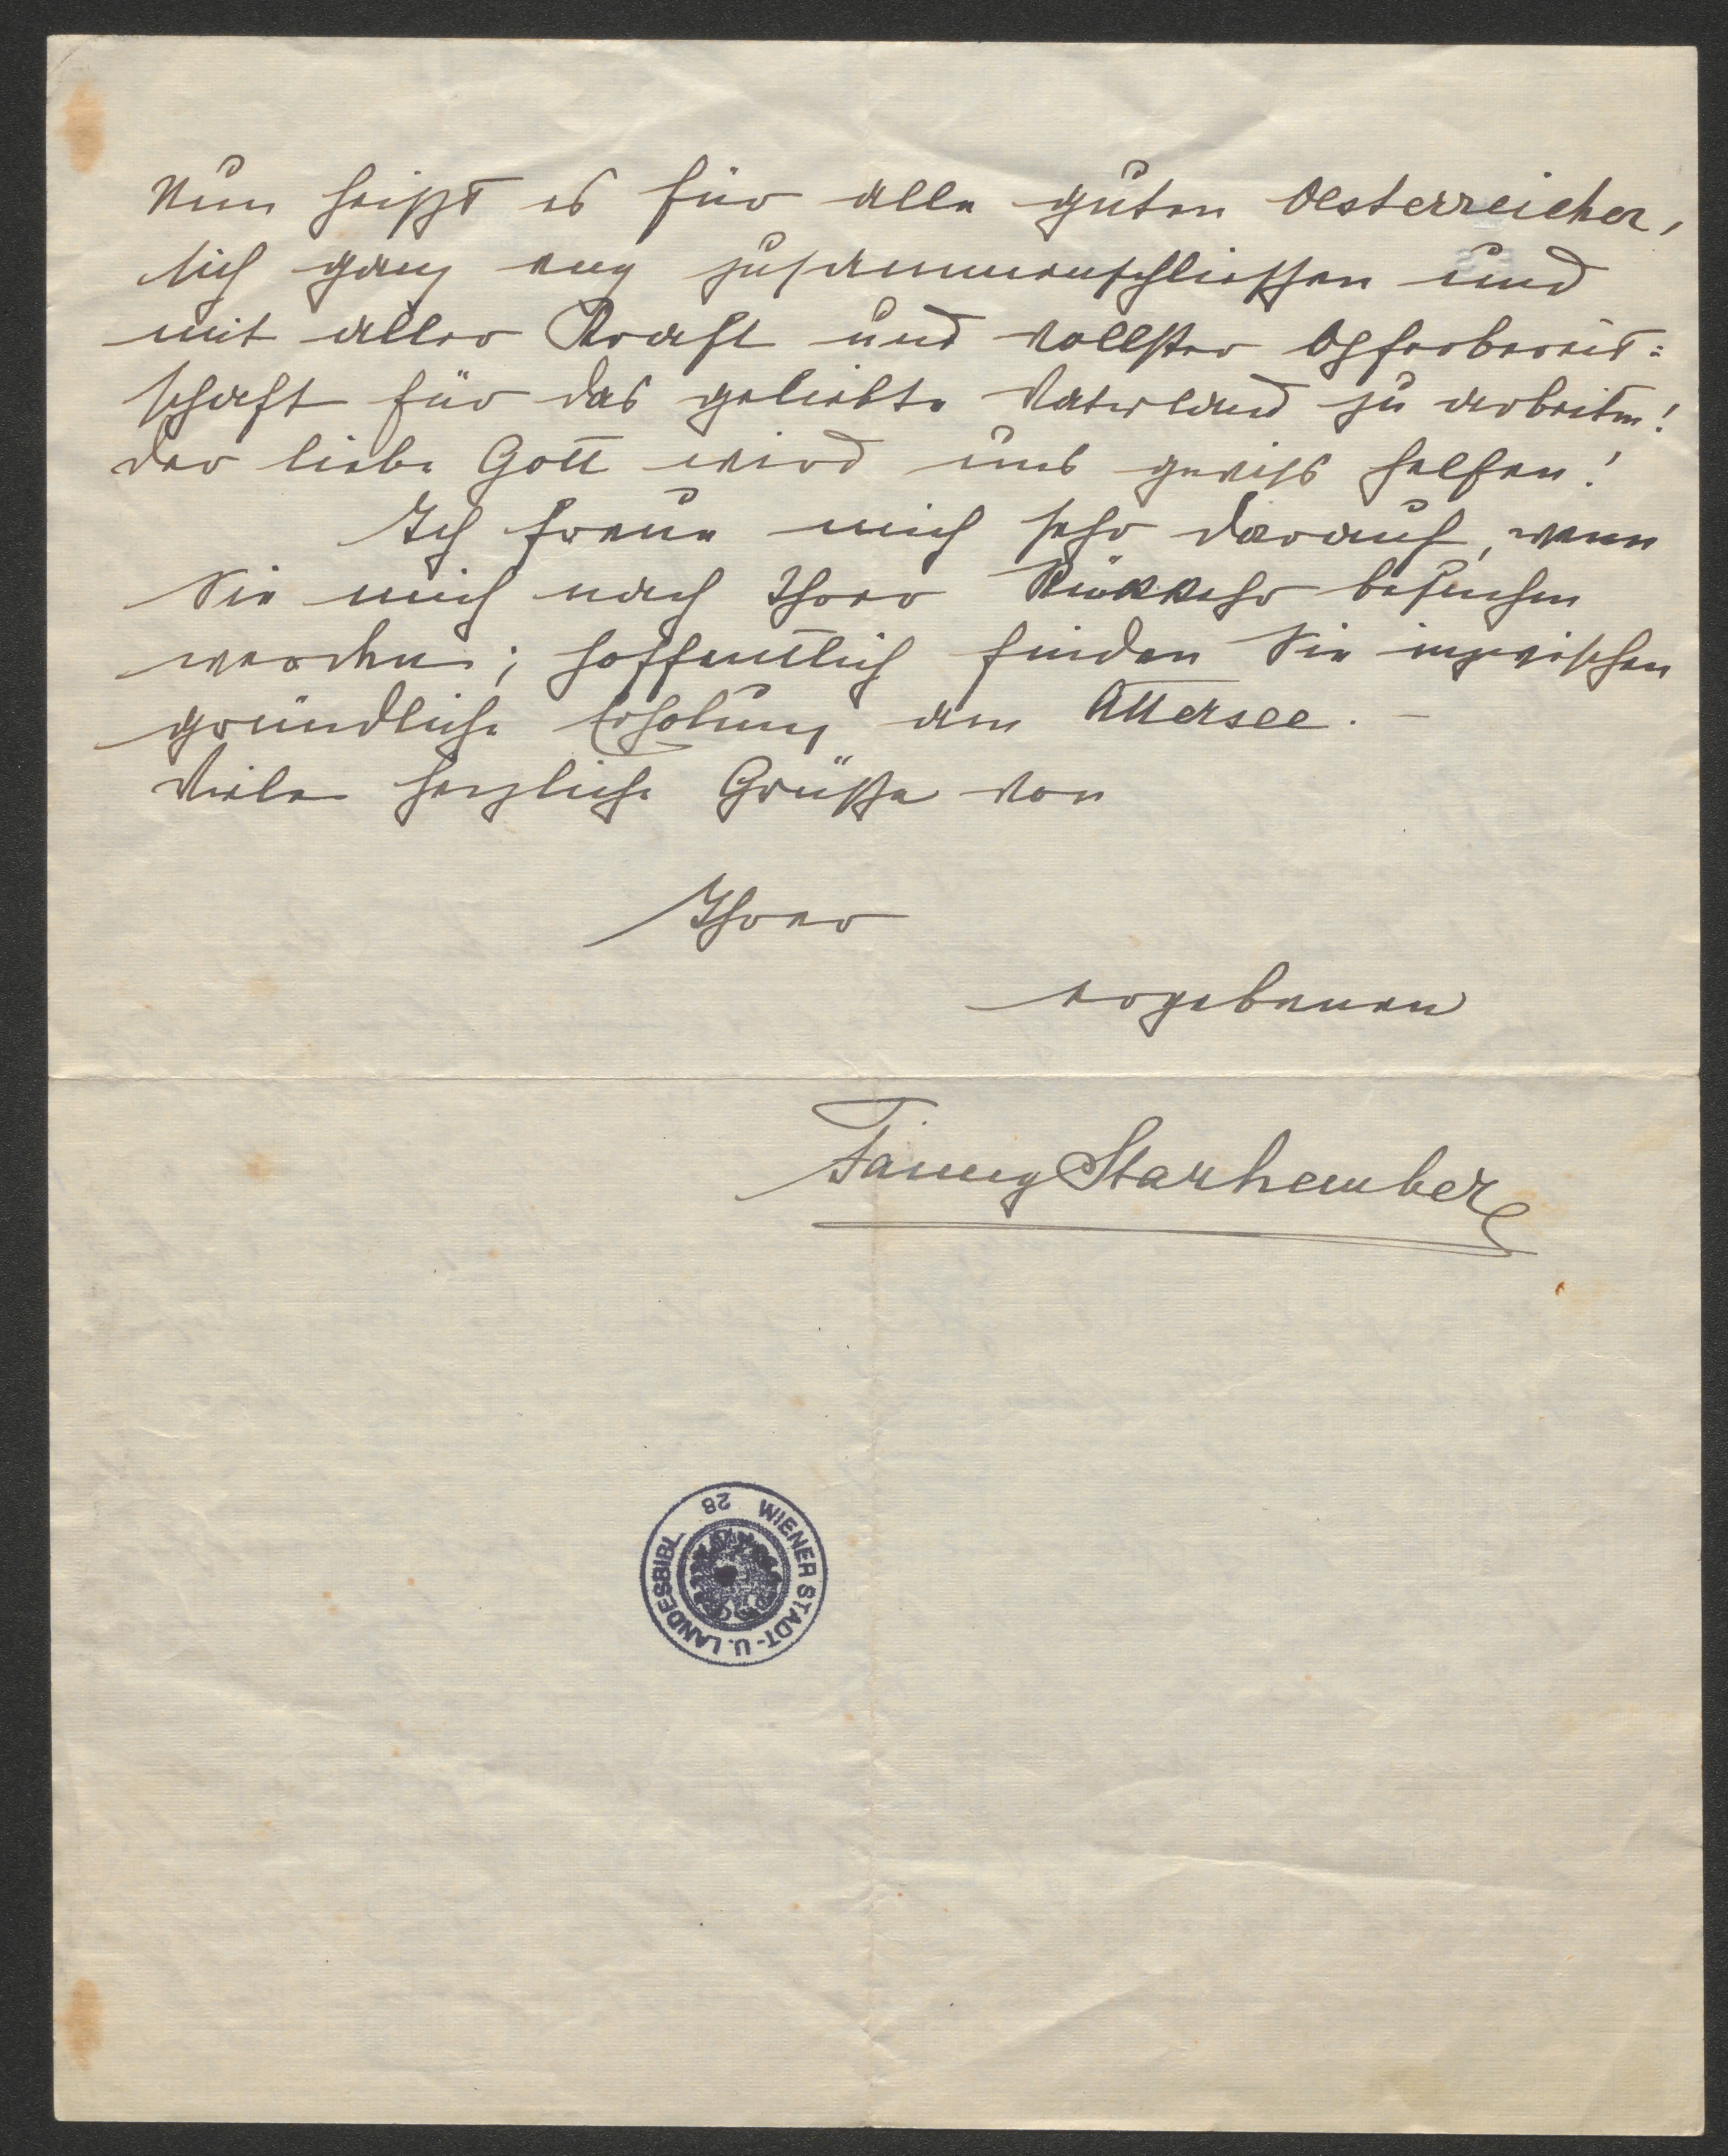 Nun heißt es für alle guten Oesterreicher,
sich ganz eng zusammenschliessen und
mit aller Kraft und vollster Opferbereit=
schaft für das geliebte Vaterland zu arbeiten!
Der liebe Gott wird uns gewiss helfen!
Ich freue mich sehr darauf, wenn
Sie mich nach Ihrer Rückkehr besuchen
werden; hoffentlich finden Sie inzwischen
gründliche Erholung am Attersee. –
Viele herzliche Grüße von
Ihrer
ergebenen
Fanny Starhemberg
WIENER STADT-U. LANDESBIBL. 28